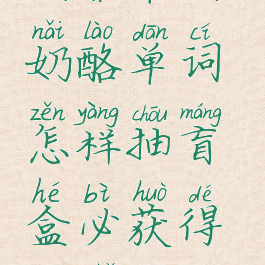 nǎi lào dān cí
奶酪单词
zěn yàng chōu máng
怎样抽盲
hé bì huò dé
盒必获得